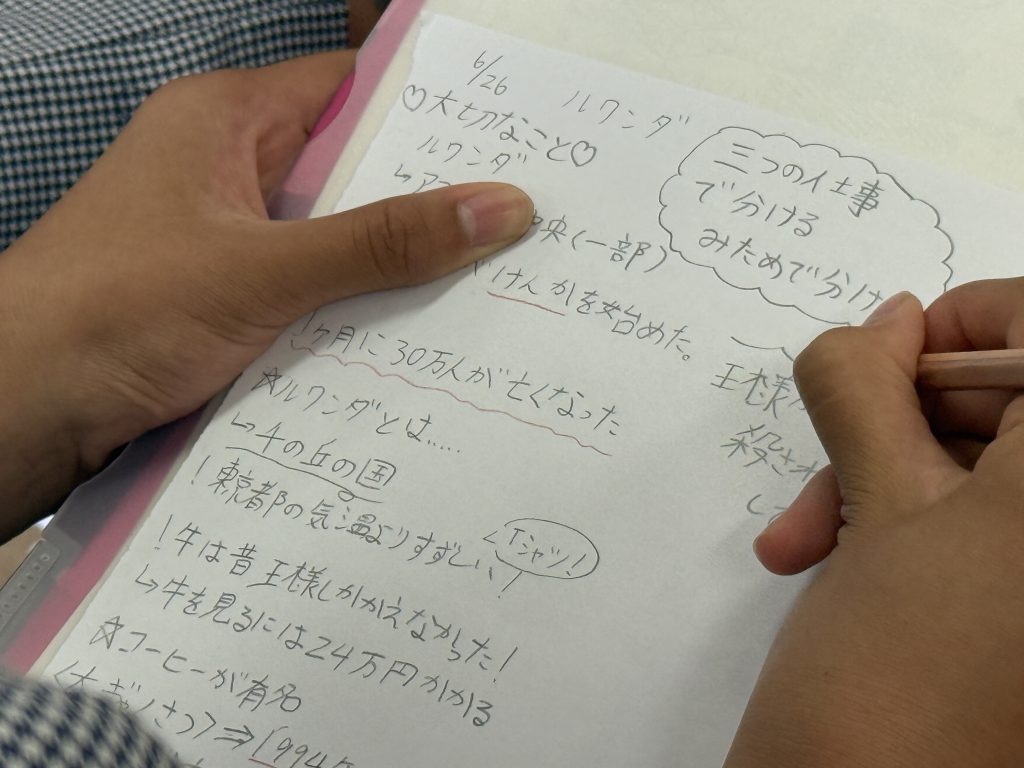 6/26 ルワンダ
♡大切なこと♡
ルワンダ
↳ア
中央(一部)
けんかを始めた。
1ヶ月に30万人が亡くなった
☆ルワンダとは.....
↳千の丘の国
!東京都の気温よりすずしい!
Tシャツ!
!牛は昔王様しかかえなかった!
↳牛を見るには24万円かかる
☆コーヒーが有名
<大ぎゃくさつ>⇒1994年
三つの仕事
で分ける
みためで分け
王様
殺され
して